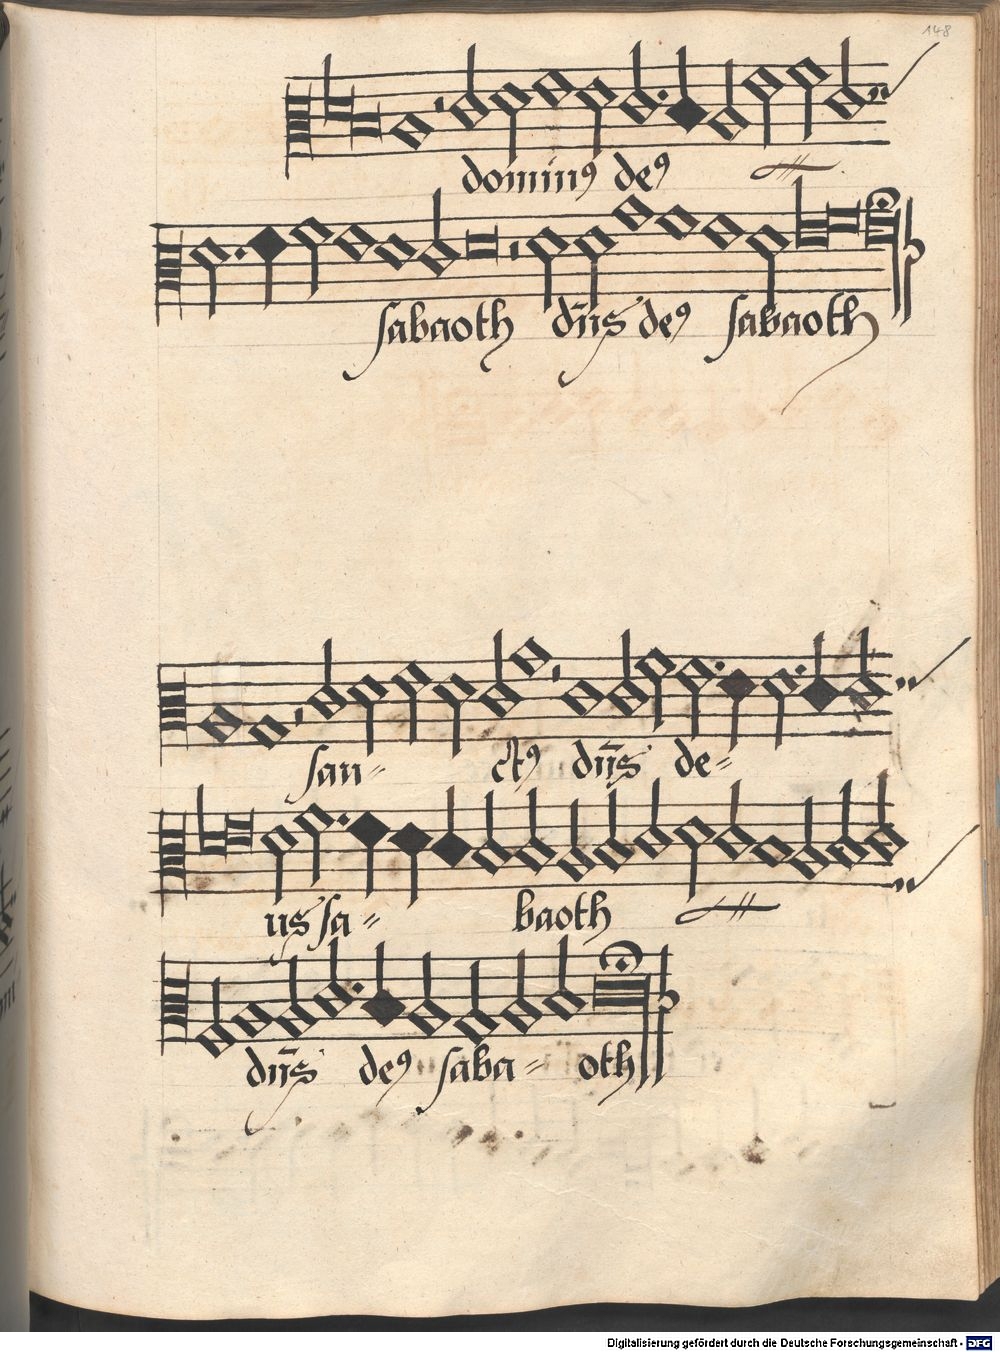 148
dominꝰ deꝰ
sabaoth dn̄s deꝰ sabaoth
san- ctꝰ dn̄s de-
us sa- baoth
dn̄s deꝰ saba- oth
Digitalisierung gefördert durch die Deutsche Forschungsgemeinschaft - DFG